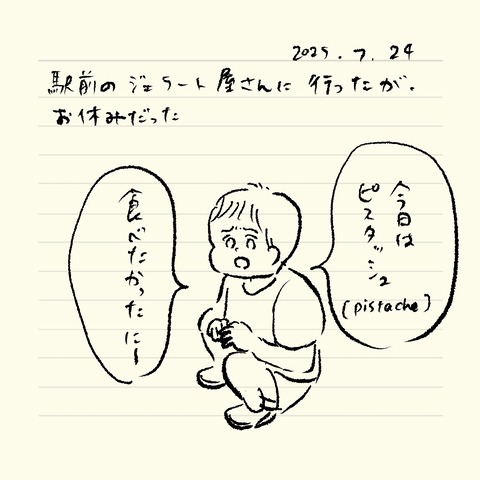 2025.7.24
駅前のジェラート屋さんに行ったが、
お休みだった
今日は
ピスタッシュ
(pistache)
食べたかったにー